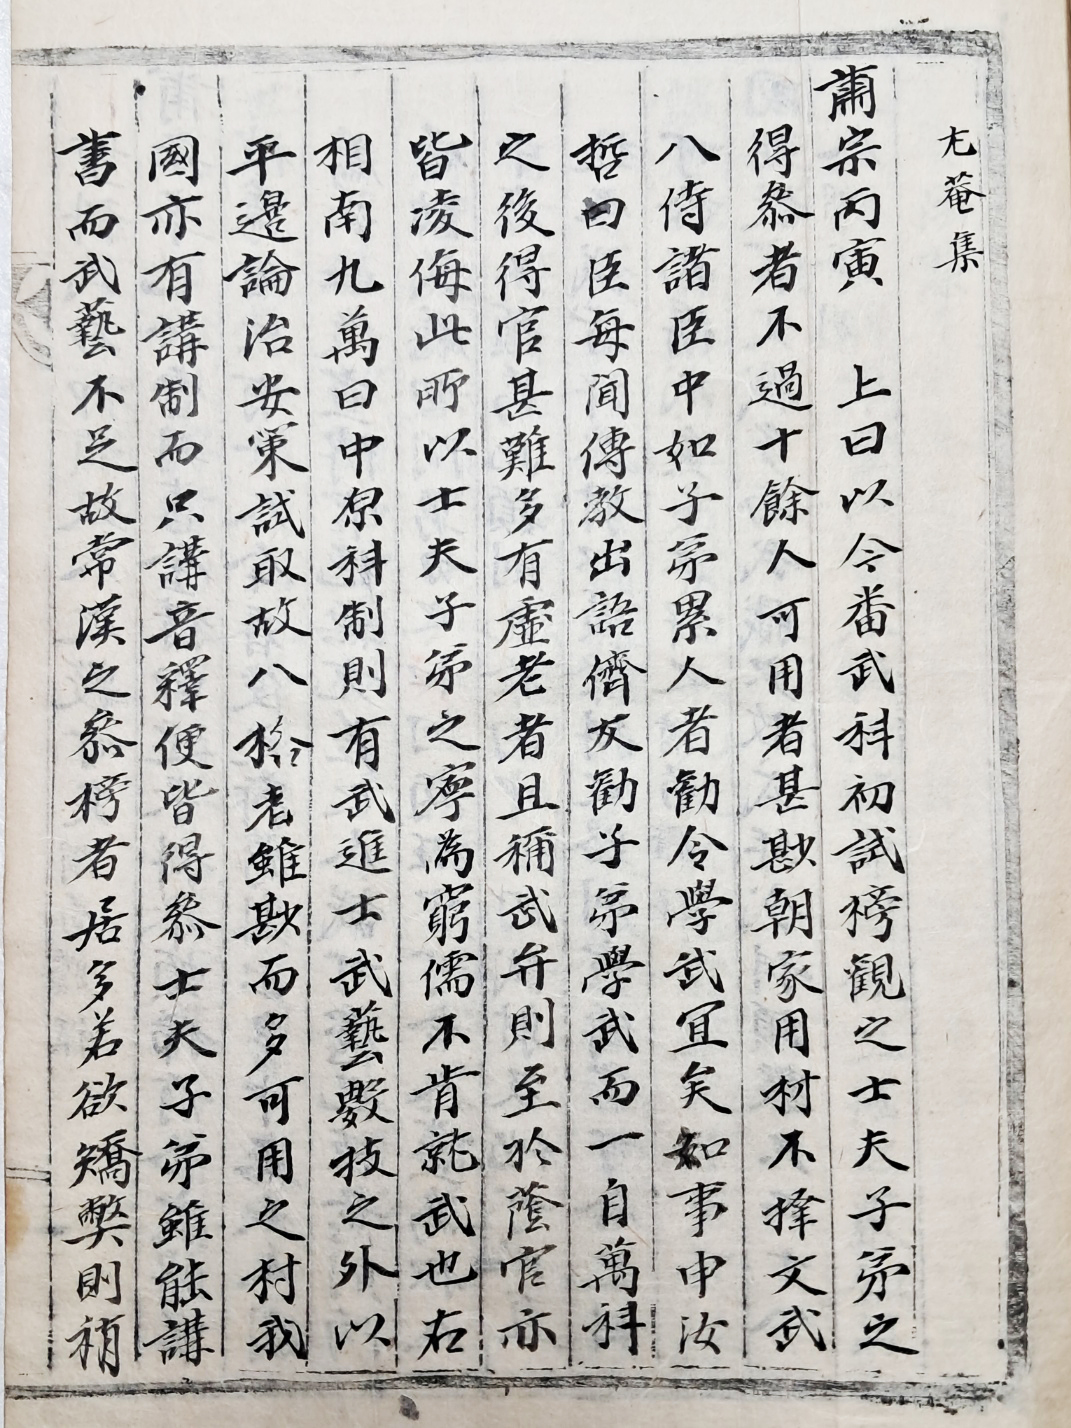 尤菴集
肅宗丙寅 上曰以今番武科初試榜觀之士夫子弟之
得叅者不過十餘人可用者甚尠朝家用材不擇文武
入侍諸臣中如子弟累人者勸令學武宜矣知事申汝
哲曰臣每聞傳教出語儕友勸子弟學武而一自萬科
之後得官甚難多有虛老者且稱武弁則至於蔭官亦
皆凌侮此所以士夫子弟之寧為窮儒不肯就武也右
相南九萬曰中原科制則有武進士武藝數技之外以
平邊論治安策試取故入格者雖尠而多可用之材我
國亦有講制而只講音釋便皆得叅士夫子弟雖能講
書而武藝不足故常漢之叅榜者居多若欲矯弊則稍